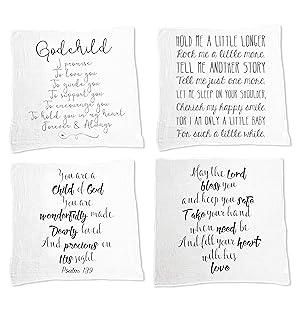 Godchild
I promise
To love you
To guide you
To support you
To encourage you
To hold you in my heart
Forever & Always
HOLD ME A LITTLE LONGER
Rock me a little more.
TELL ME ANOTHER STORY
Tell me just one more.
LET ME SLEEP ON YOUR SHOULDER,
Cherish my happy smile
FOR I AM ONLY A LITTLE BABY
For such a little while.
You are a
Child of God
You are
wonderfully made
Dearly loved
And precious in
His sight.
Psalms 139
May the Lord
bless you
and keep you safe
Take your hand
when need be
And fill your heart
with his
love